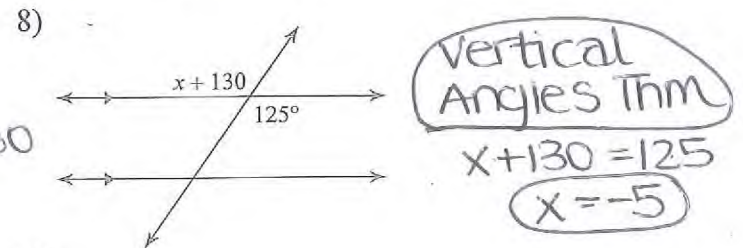 8)
x + 130
125°
Vertical
Angles Thm
x+130 = 125
x = -5